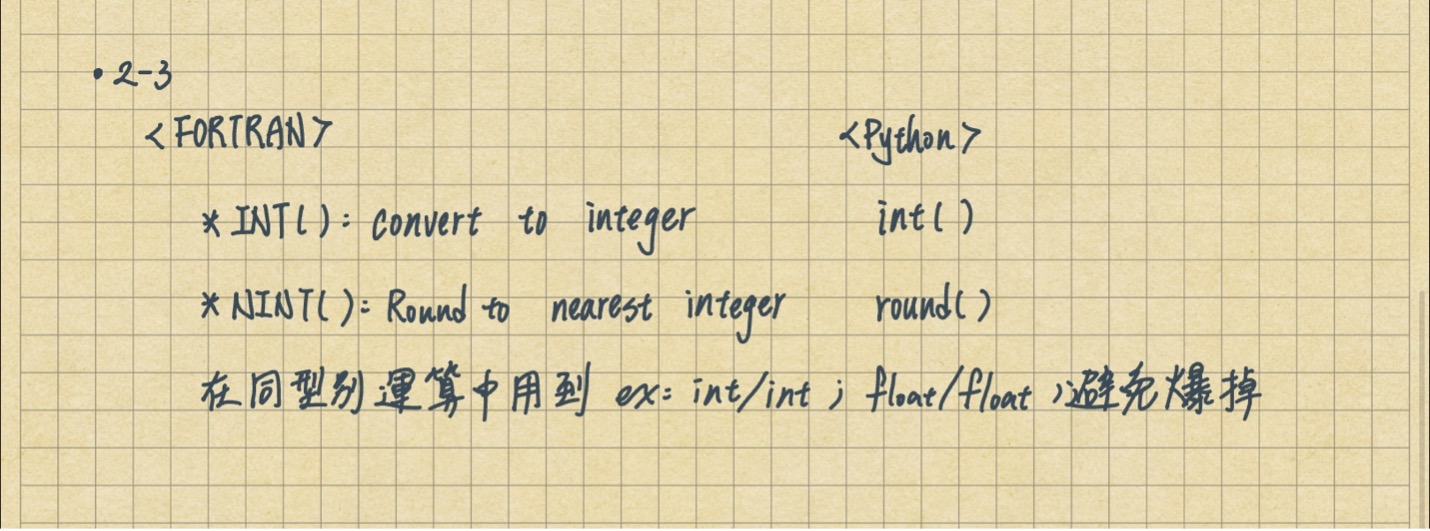 • 2-3
<FORTRAN> <Python>
* INT(): convert to integer int()
* NINT(): Round to nearest integer round()
在同型別運算中用到 ex: int/int ; float/float ;避免爆掉